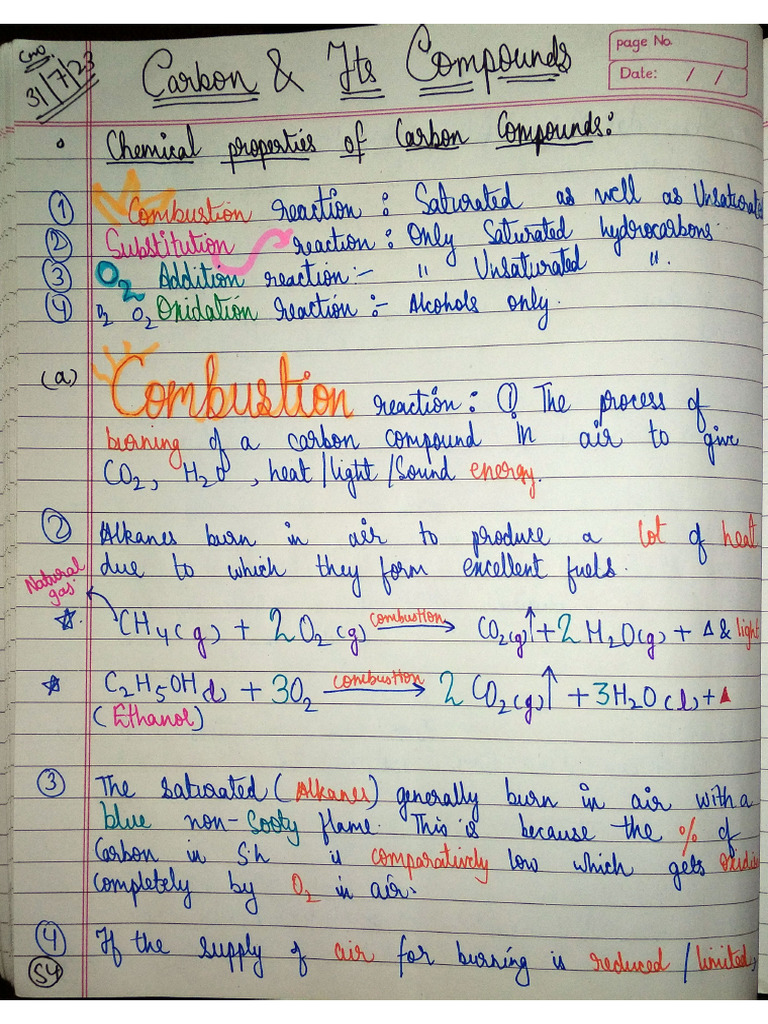 CNO
31/7/23
Carbon & Its Compounds
page No.
Date: / /
Chemical properties of Carbon Compounds:
① Combustion reaction: Saturated as well as Unsaturated
② Substitution reaction: Only Saturated hydrocarbons.
③ O2 Addition reaction:- " Unsaturated ".
④ O2 Oxidation reaction:- Alcohols only.
(a) Combustion reaction: ① The process of
burning of a carbon compound in air to give
CO2, H2O, heat/light/Sound energy.
② Alkanes burn in air to produce a lot of heat
due to which they form excellent fuels.
Natural gas.
☆ CH4(g) + 2O2(g) combustion → CO2(g)↑ + 2H2O(g) + Δ & light
☆ C2H5OH(l) + 3O2 combustion → 2CO2(g)↑ + 3H2O(l) + Δ
(Ethanol)
③ The saturated (Alkanes) generally burn in air with a
blue non-sooty flame. This is because the % of
Carbon in S.h is comparatively low which gets oxidis
completely by O2 in air.
④ If the supply of air for burning is reduced/limited,
54